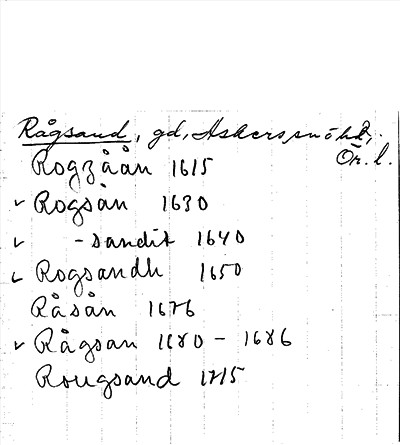 Rågsand, gd, Askers sn ö hd,
Ör. l.
Rogzåån 1615
✓ Rogsån 1630
✓ -sandit 1640
✓ Rogsandh 1650
Råsån 1676
✓ Rågsan 1680 - 1686
Rougsand 1715